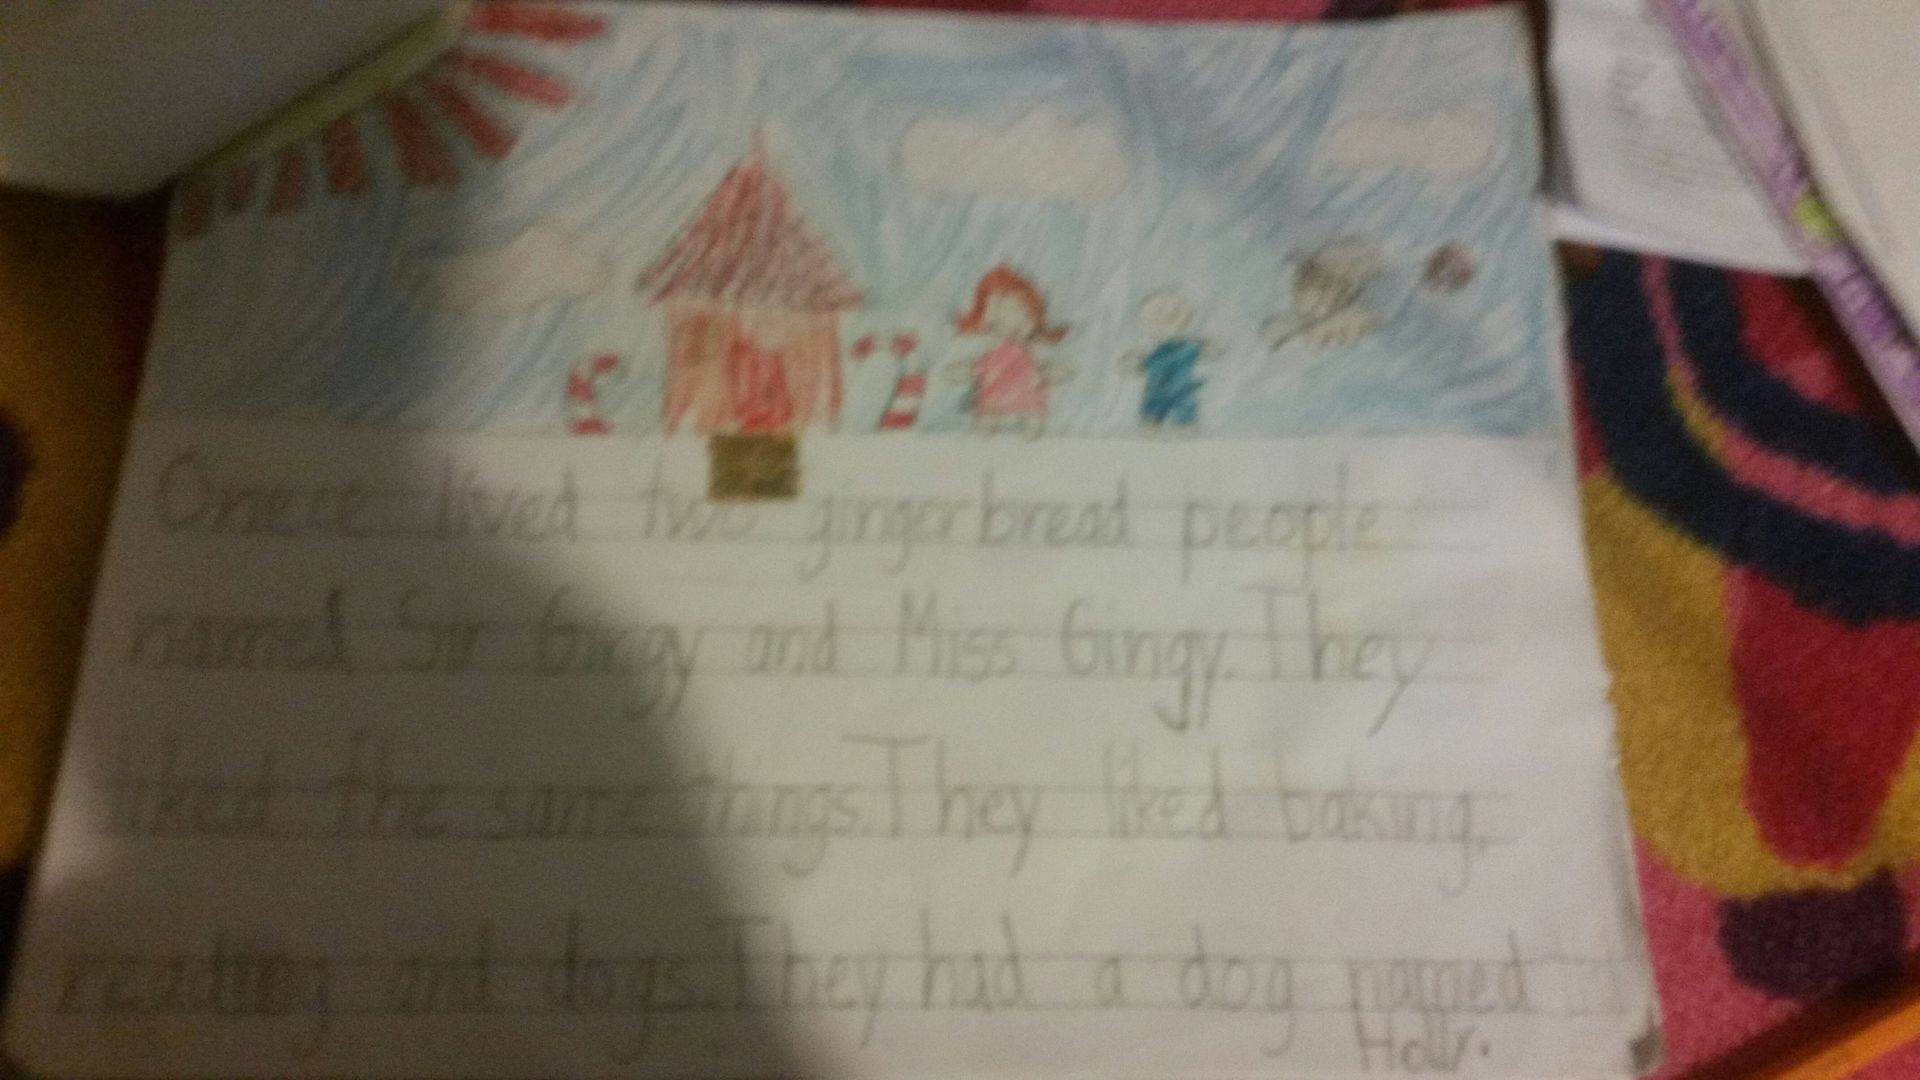 Once lived two gingerbread people
named Sir Gingy and Miss Gingy. They
liked the same things. They liked baking,
reading and dogs. They had a dog named
Holly.